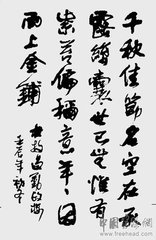 千秋佳節名空在承
露絲囊世已無惟有
紫苔偏稱意年年因
雨上金鋪
杜牧過勤政樓
www.freehead.com